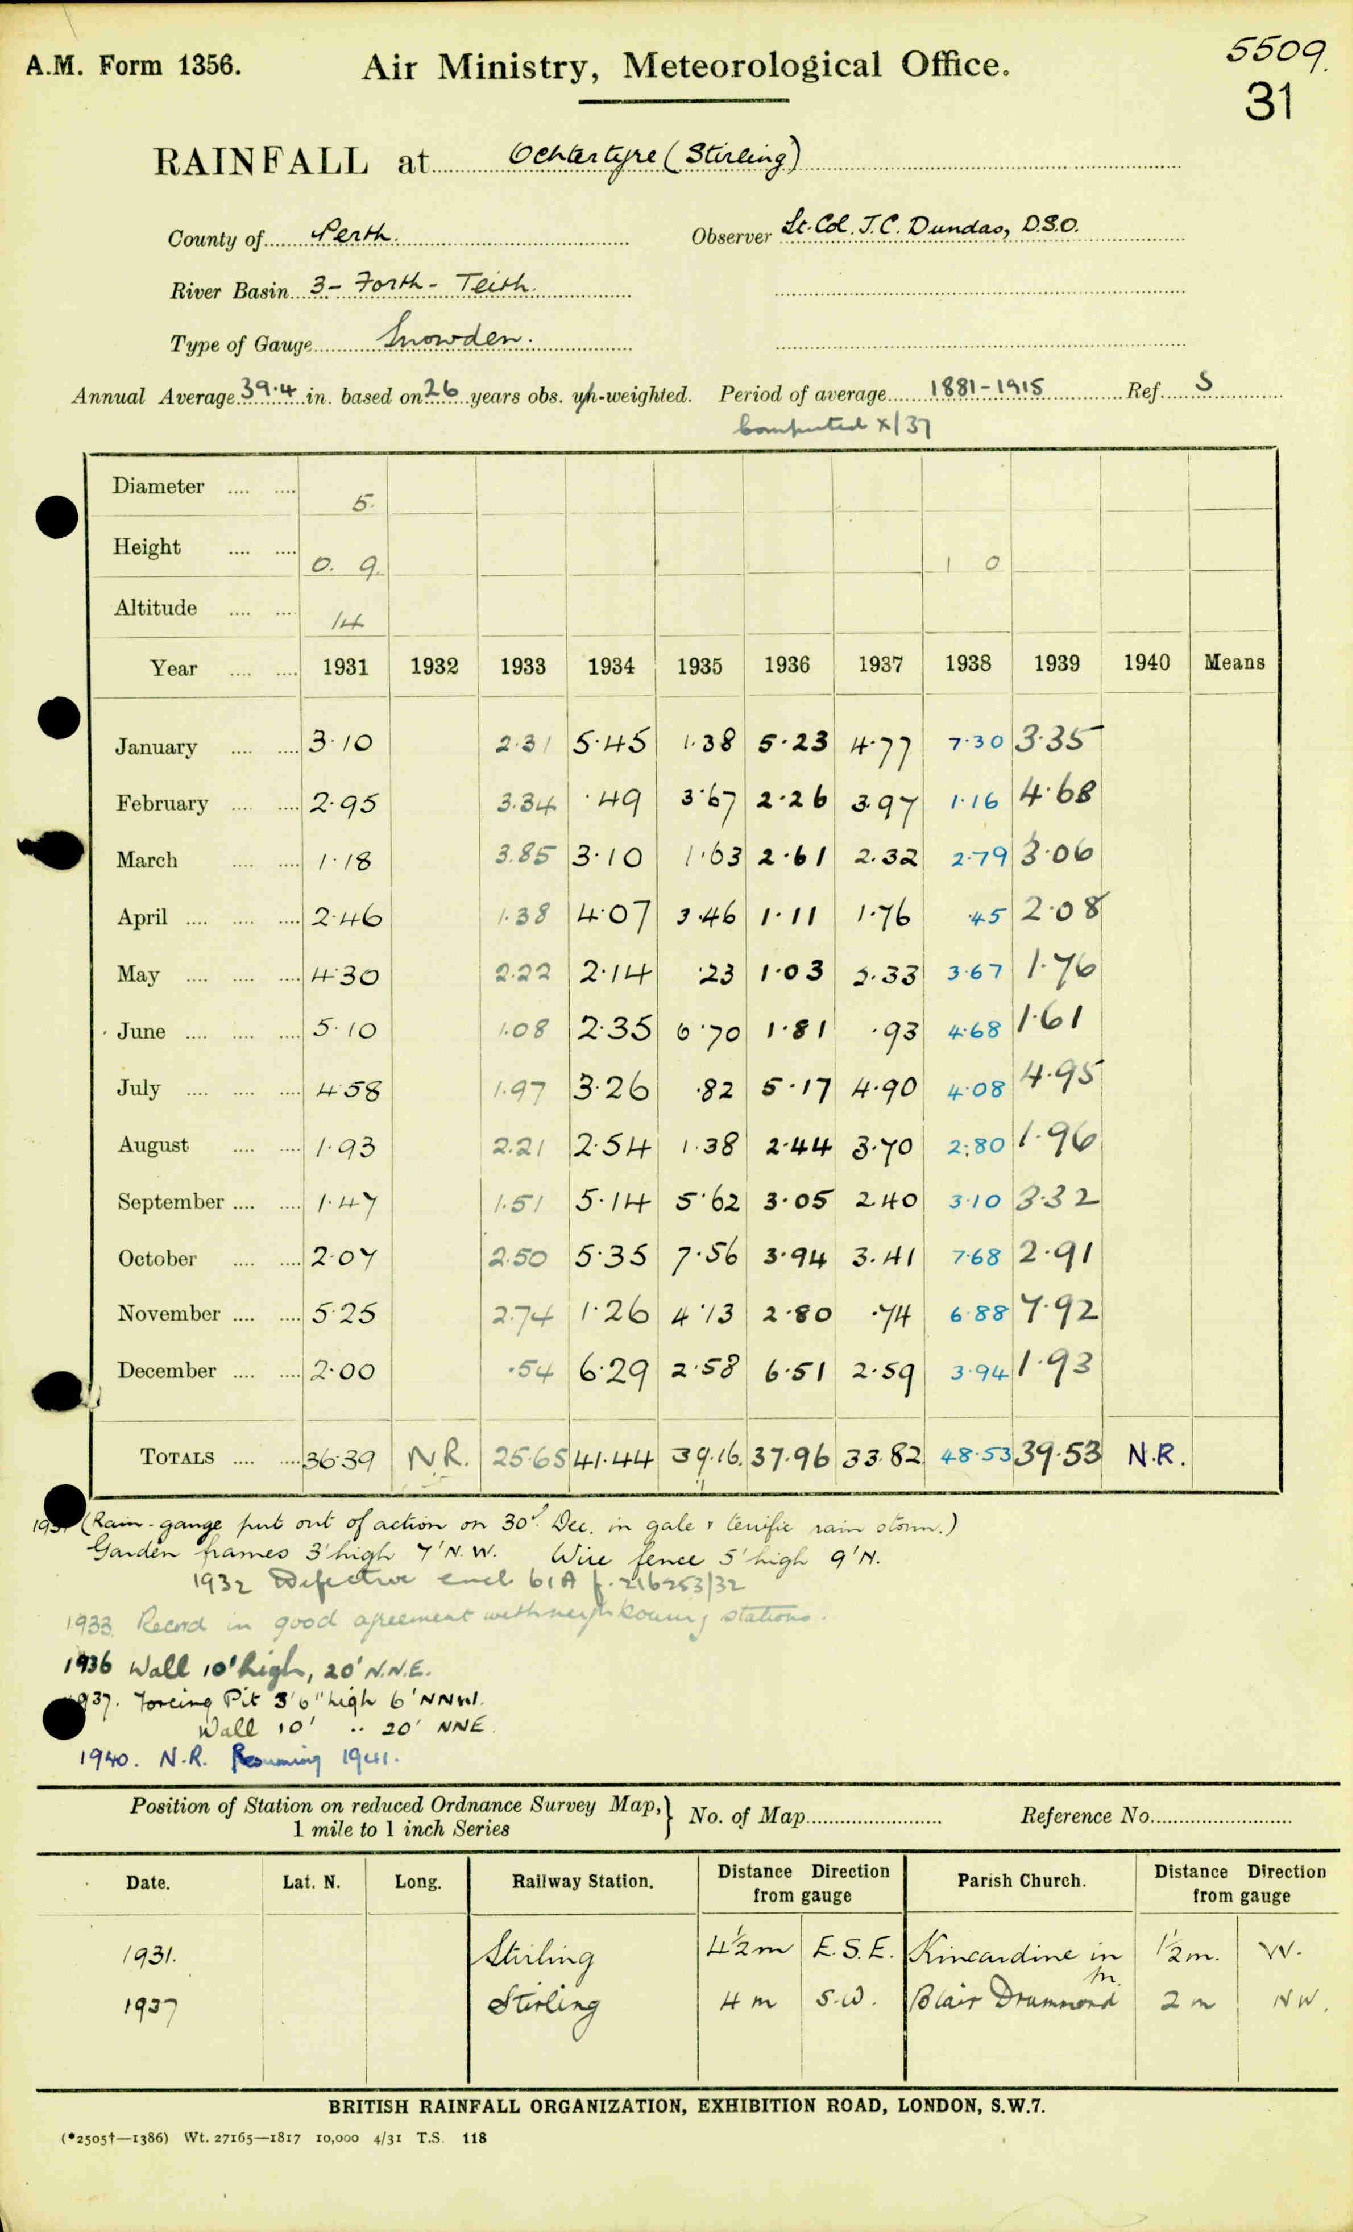 A.M. Form 1356. Air Ministry, Meteorological Office. 5509.
31
RAINFALL at Ochtertyre (Stirling)
County of Perth. Observer Lt. Col. J.C. Dundas, D.S.O.
River Basin 3 - Forth - Teith.
Type of Gauge Snowden.
Annual Average 39.4 in. based on 26 years obs. un-weighted. Period of average 1881-1915 Ref. S
Computed X/37
Diameter .... .... 5.
Height .... .... 0. 9. 1 0
Altitude .... .... 14
Year .... .... 1931 1932 1933 1934 1935 1936 1937 1938 1939 1940 Means
January .... .... 3.10 2.31 5.45 1.38 5.23 4.77 7.30 3.35
February .... .... 2.95 3.34 .49 3.67 2.26 3.97 1.16 4.68
March .... .... 1.18 3.85 3.10 1.63 2.61 2.32 2.79 3.06
April .... .... .... 2.46 1.38 4.07 3.46 1.11 1.76 .45 2.08
May .... .... .... 4.30 2.22 2.14 .23 1.03 2.33 3.67 1.76
June .... .... .... 5.10 1.08 2.35 6.70 1.81 .93 4.68 1.61
July .... .... .... 4.58 1.97 3.26 .82 5.17 4.90 4.08 4.95
August .... .... 1.93 2.21 2.54 1.38 2.44 3.70 2.80 1.96
September .... .... 1.47 1.51 5.14 5.62 3.05 2.40 3.10 3.32
October .... .... 2.07 2.50 5.35 7.56 3.94 3.41 7.68 2.91
November .... .... 5.25 2.74 1.26 4.13 2.80 .74 6.88 7.92
December .... .... 2.00 .54 6.29 2.58 6.51 2.59 3.94 1.93
TOTALS .... .... 36.39 N.R. 25.65 41.44 39.16. 37.96 33.82 48.53 39.53 N.R.
(Rain-gauge put out of action on 30th Dec. in gale & terrific rain storm.)
Garden frames 3' high 7' N.W. Wire fence 5' high 9' N.
1932 Defective encl 61A f. 216253/32
1933. Record in good agreement with neighbouring stations.
1936 Wall 10' high, 20' N.N.E.
937. Forcing Pit 3'6" high 6' NNW.
Wall 10' " 20' NNE.
1940. N.R. Resuming 1941.
Position of Station on reduced Ordnance Survey Map, 1 mile to 1 inch Series } No. of Map Reference No.
Date. Lat. N. Long. Railway Station. Distance Direction from gauge Parish Church. Distance Direction from gauge
1931. Stirling 4½ m E.S.E. Kincardine in 1½ m. W.
1937 Stirling 4 m S.W. Blair Drummond 2 m NW.
BRITISH RAINFALL ORGANIZATION, EXHIBITION ROAD, LONDON, S.W.7.
(*2505†—1386) Wt. 27165—1817 10,000 4/31 T.S. 118